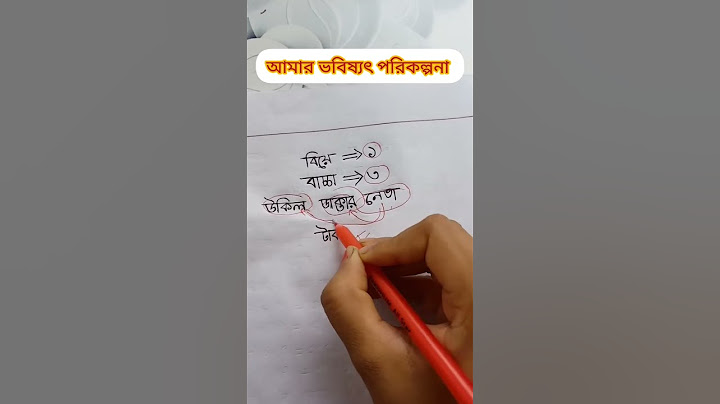 আমার ভবিষ্যৎ পরিকল্পনা
বিয়ে ⇒ ১
বাচ্চা ⇒ ৩
উকিল ডাক্তার নেতা